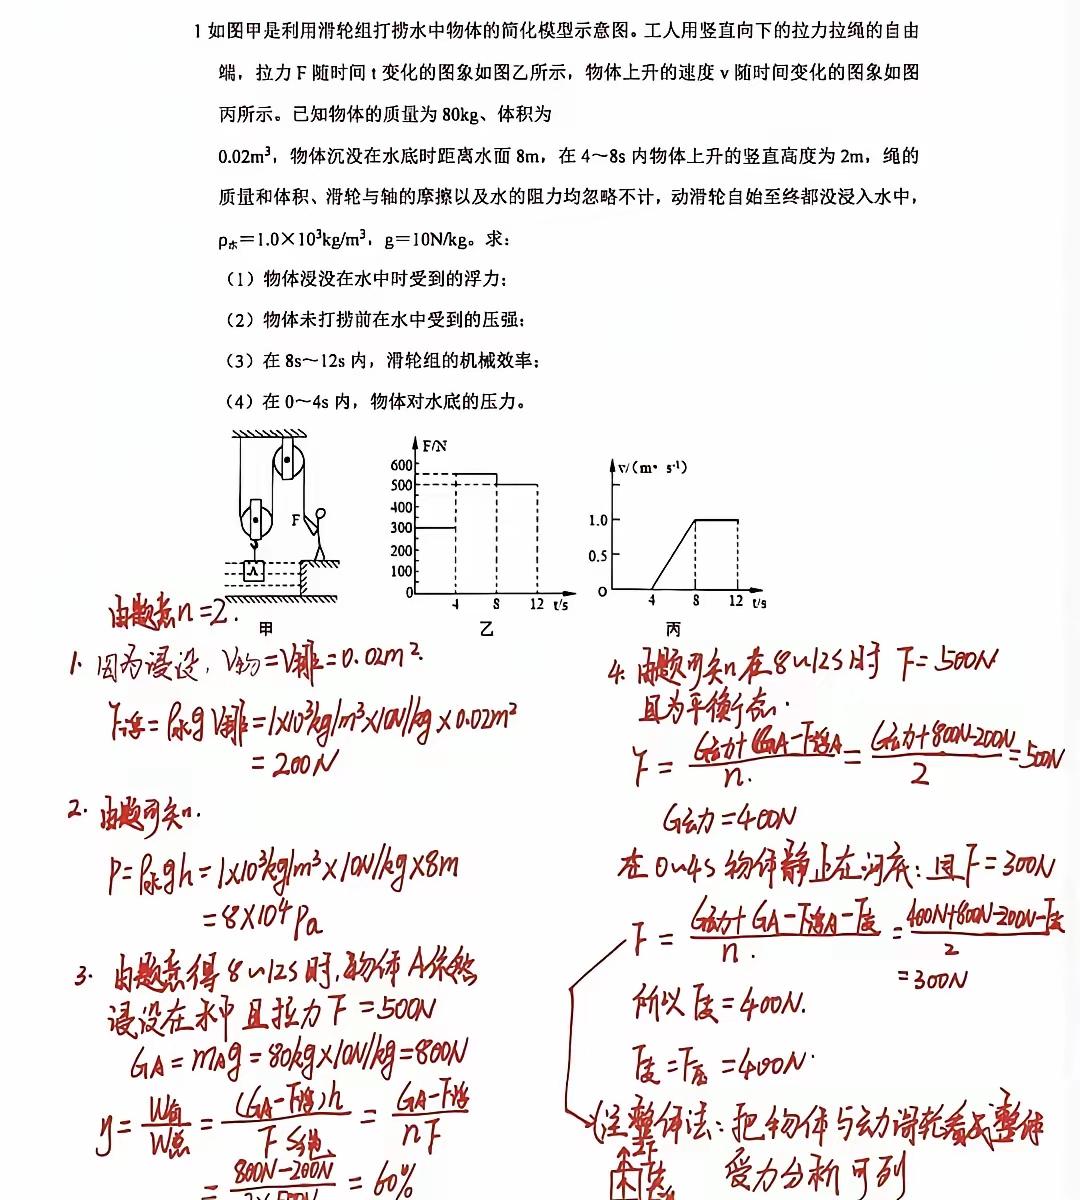 1 如图甲是利用滑轮组打捞水中物体的简化模型示意图。工人用竖直向下的拉力拉绳的自由
端，拉力 F 随时间 t 变化的图象如图乙所示，物体上升的速度 v 随时间变化的图象如图
丙所示。已知物体的质量为 80kg、体积为
0.02m³，物体沉没在水底时距离水面 8m，在 4～8s 内物体上升的竖直高度为 2m，绳的
质量和体积、滑轮与轴的摩擦以及水的阻力均忽略不计，动滑轮自始至终都没浸入水中，
ρ水＝1.0×10³kg/m³，g＝10N/kg。求：
（1）物体浸没在水中时受到的浮力；
（2）物体未打捞前在水中受到的压强；
（3）在 8s～12s 内，滑轮组的机械效率；
（4）在 0～4s 内，物体对水底的压力。
F
A
甲
F/N
600
500
400
300
200
100
0
4 8 12 t/s
乙
v/(m·s⁻¹)
1.0
0.5
0
4 8 12 t/s
丙
由题意n=2.
1. 因为浸没, V物=V排=0.02m².
F浮=ρ水gV排=1×10³kg/m³×10N/kg×0.02m²
=200N
2. 由题可知.
P=ρ水gh=1×10³kg/m³×10N/kg×8m
=8×10⁴Pa
3. 由题意得8~12s时,物体A依然
浸没在水中且拉力F=500N
GA=mAg=80kg×10N/kg=800N
η=W有/W总=(GA-F浮)h/FS绳=GA-F浮/nF
=800N-200N/2×500N=60%
4. 由题可知在8~12s时 F=500N
且为平衡态.
F=G动+GA-F浮A/n.=G动+800N-200N/2=500N
G动=400N
在0~4s物体静止在河底:且F=300N
F=G动+GA-F浮A-F支/n.=400N+800N-200N-F支/2
=300N
所以F支=400N.
F支=F压=400N.
(注整体法:把物体与动滑轮看成整体
2F
受力分析可列